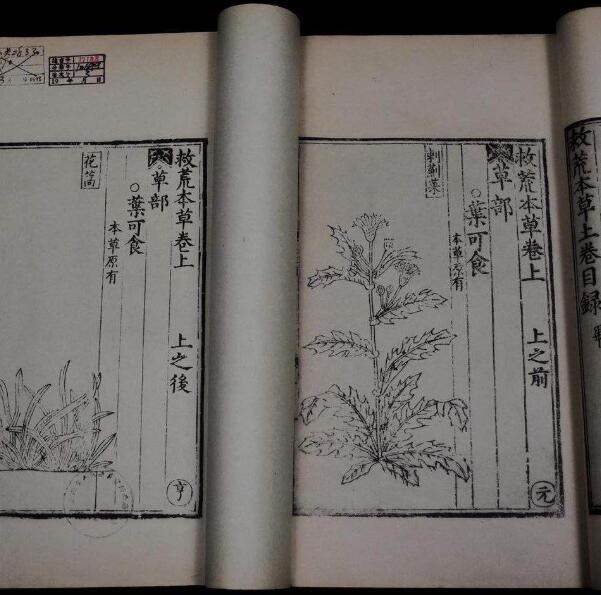 救荒本草上卷目録
救荒本草卷上 上之前
草部
○葉可食
本草原有
刺薊菜
元
救荒本草卷上 上之後
草部
○葉可食
本草原有
花蒿
亨